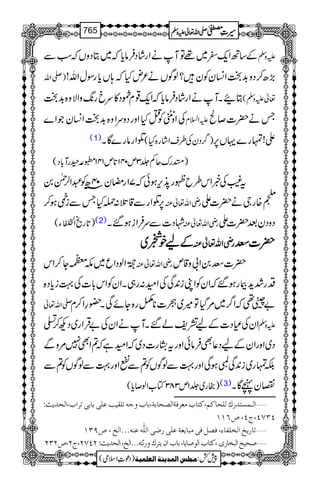 سیرتِ مصطفیٰ صلی اللہ تعالیٰ علیہ وسلم 765
علیہ وسلم کے ساتھ ایک سفر میں تھے تو آپ نے ارشاد فرمایا کہ میں بتادوں کہ سب سے
بڑھ کر دو بدبخت انسان کون ہیں؟ لوگوں نے عرض کیا کہ ہاں یا رسول اللہ! (صلی اللہ
تعالیٰ علیہ وسلم) بتائیے۔ آپ نے ارشاد فرمایا کہ ایک قوم ثمود کا سرخ رنگ والا وہ بدبخت
جس نے حضرت صالح علیہ السلام کی اونٹنی کو قتل کیا اور دوسرا وہ بدبخت انسان جو اے
علی! تمہارے یہاں پر (گردن کی طرف اشارہ کیا) تلوار مارے گا۔ (1)
(مستدرک حاکم جلد۳ ص۱۴۰ تا ص۱۴۱ مطبوعہ حیدرآباد)
یہ غیبی خبر اس طرح ظہور پذیر ہوئی کہ ۱۷ رمضان ۴۰ھ کو عبدالرحمٰن بن
ملجم خارجی نے حضرت علی رضی اللہ تعالیٰ عنہ پر تلوار سے قاتلانہ حملہ کیا جس سے زخمی ہو کر
دو دن بعد حضرت علی رضی اللہ تعالیٰ عنہ شہادت سے سرفراز ہو گئے۔ (2) (تاریخ الخلفاء)
حضرت سعد رضی اللہ تعالیٰ عنہ کے لیے خوشخبری
حضرت سعد بن ابی وقاص رضی اللہ تعالیٰ عنہ حجۃ الوداع میں مکہ معظمہ جا کر اس
قدر شدید بیمار ہو گئے کہ ان کو اپنی زندگی کی امید نہ رہی۔ ان کو اس بات کی بہت زیادہ
بے چینی تھی کہ اگر میں مر گیا تو میری ہجرت نامکمل رہ جائے گی۔ حضور اکرم صلی اللہ تعالیٰ
علیہ وسلم ان کی عیادت کے لیے تشریف لے گئے۔ آپ نے ان کی بے قراری دیکھ کر تسلی
دی اور ان کے لیے دعا بھی فرمائی اور یہ بشارت دی کہ امید ہے کہ تم ابھی نہیں مرو گے
بلکہ تمہاری زندگی لمبی ہوگی اور بہت سے لوگوں کو تم سے نفع اور بہت سے لوگوں کو تم سے
نقصان پہنچے گا۔ (3) (بخاری جلد۱ ص۳۸۳ کتاب الوصایا)
المستدرک للحاکم، کتاب معرفۃ الصحابۃ، باب وجہ تلقیب علی بابی تراب، الحدیث:
۴۷۳۴، ج۴، ص۱۱۶
تاریخ الخلفاء، فصل فی مبایعۃ علی رضی اللہ عنہ...الخ، ص۱۳۹
صحیح البخاری، کتاب الوصایا، باب ان یترک ورثتہ...الخ، الحدیث: ۲۷۴۲، ج۲، ص۲۳۲
پیش کش: مجلس المدینۃ العلمیۃ (دعوتِ اسلامی)